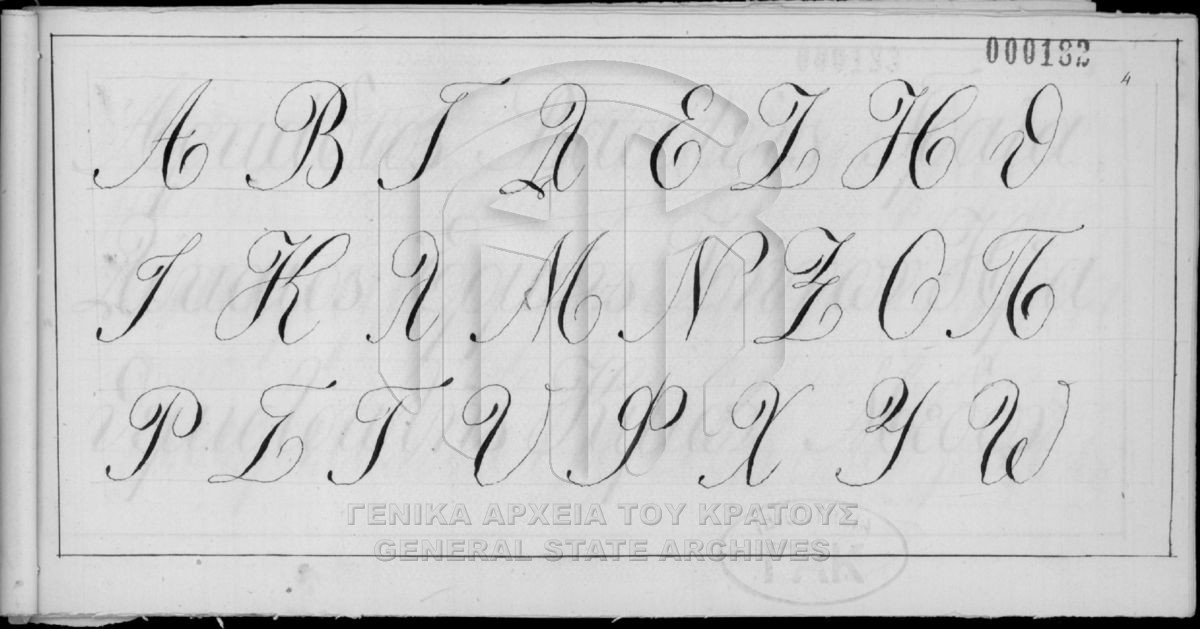 000182
4
Α Β Γ Δ Ε Ζ Η Θ
Ι Κ Λ Μ Ν Ξ Ο Π
Ρ Σ Τ Υ Φ Χ Ψ Ω
ΓΕΝΙΚΑ ΑΡΧΕΙΑ ΤΟΥ ΚΡΑΤΟΥΣ
GENERAL STATE ARCHIVES